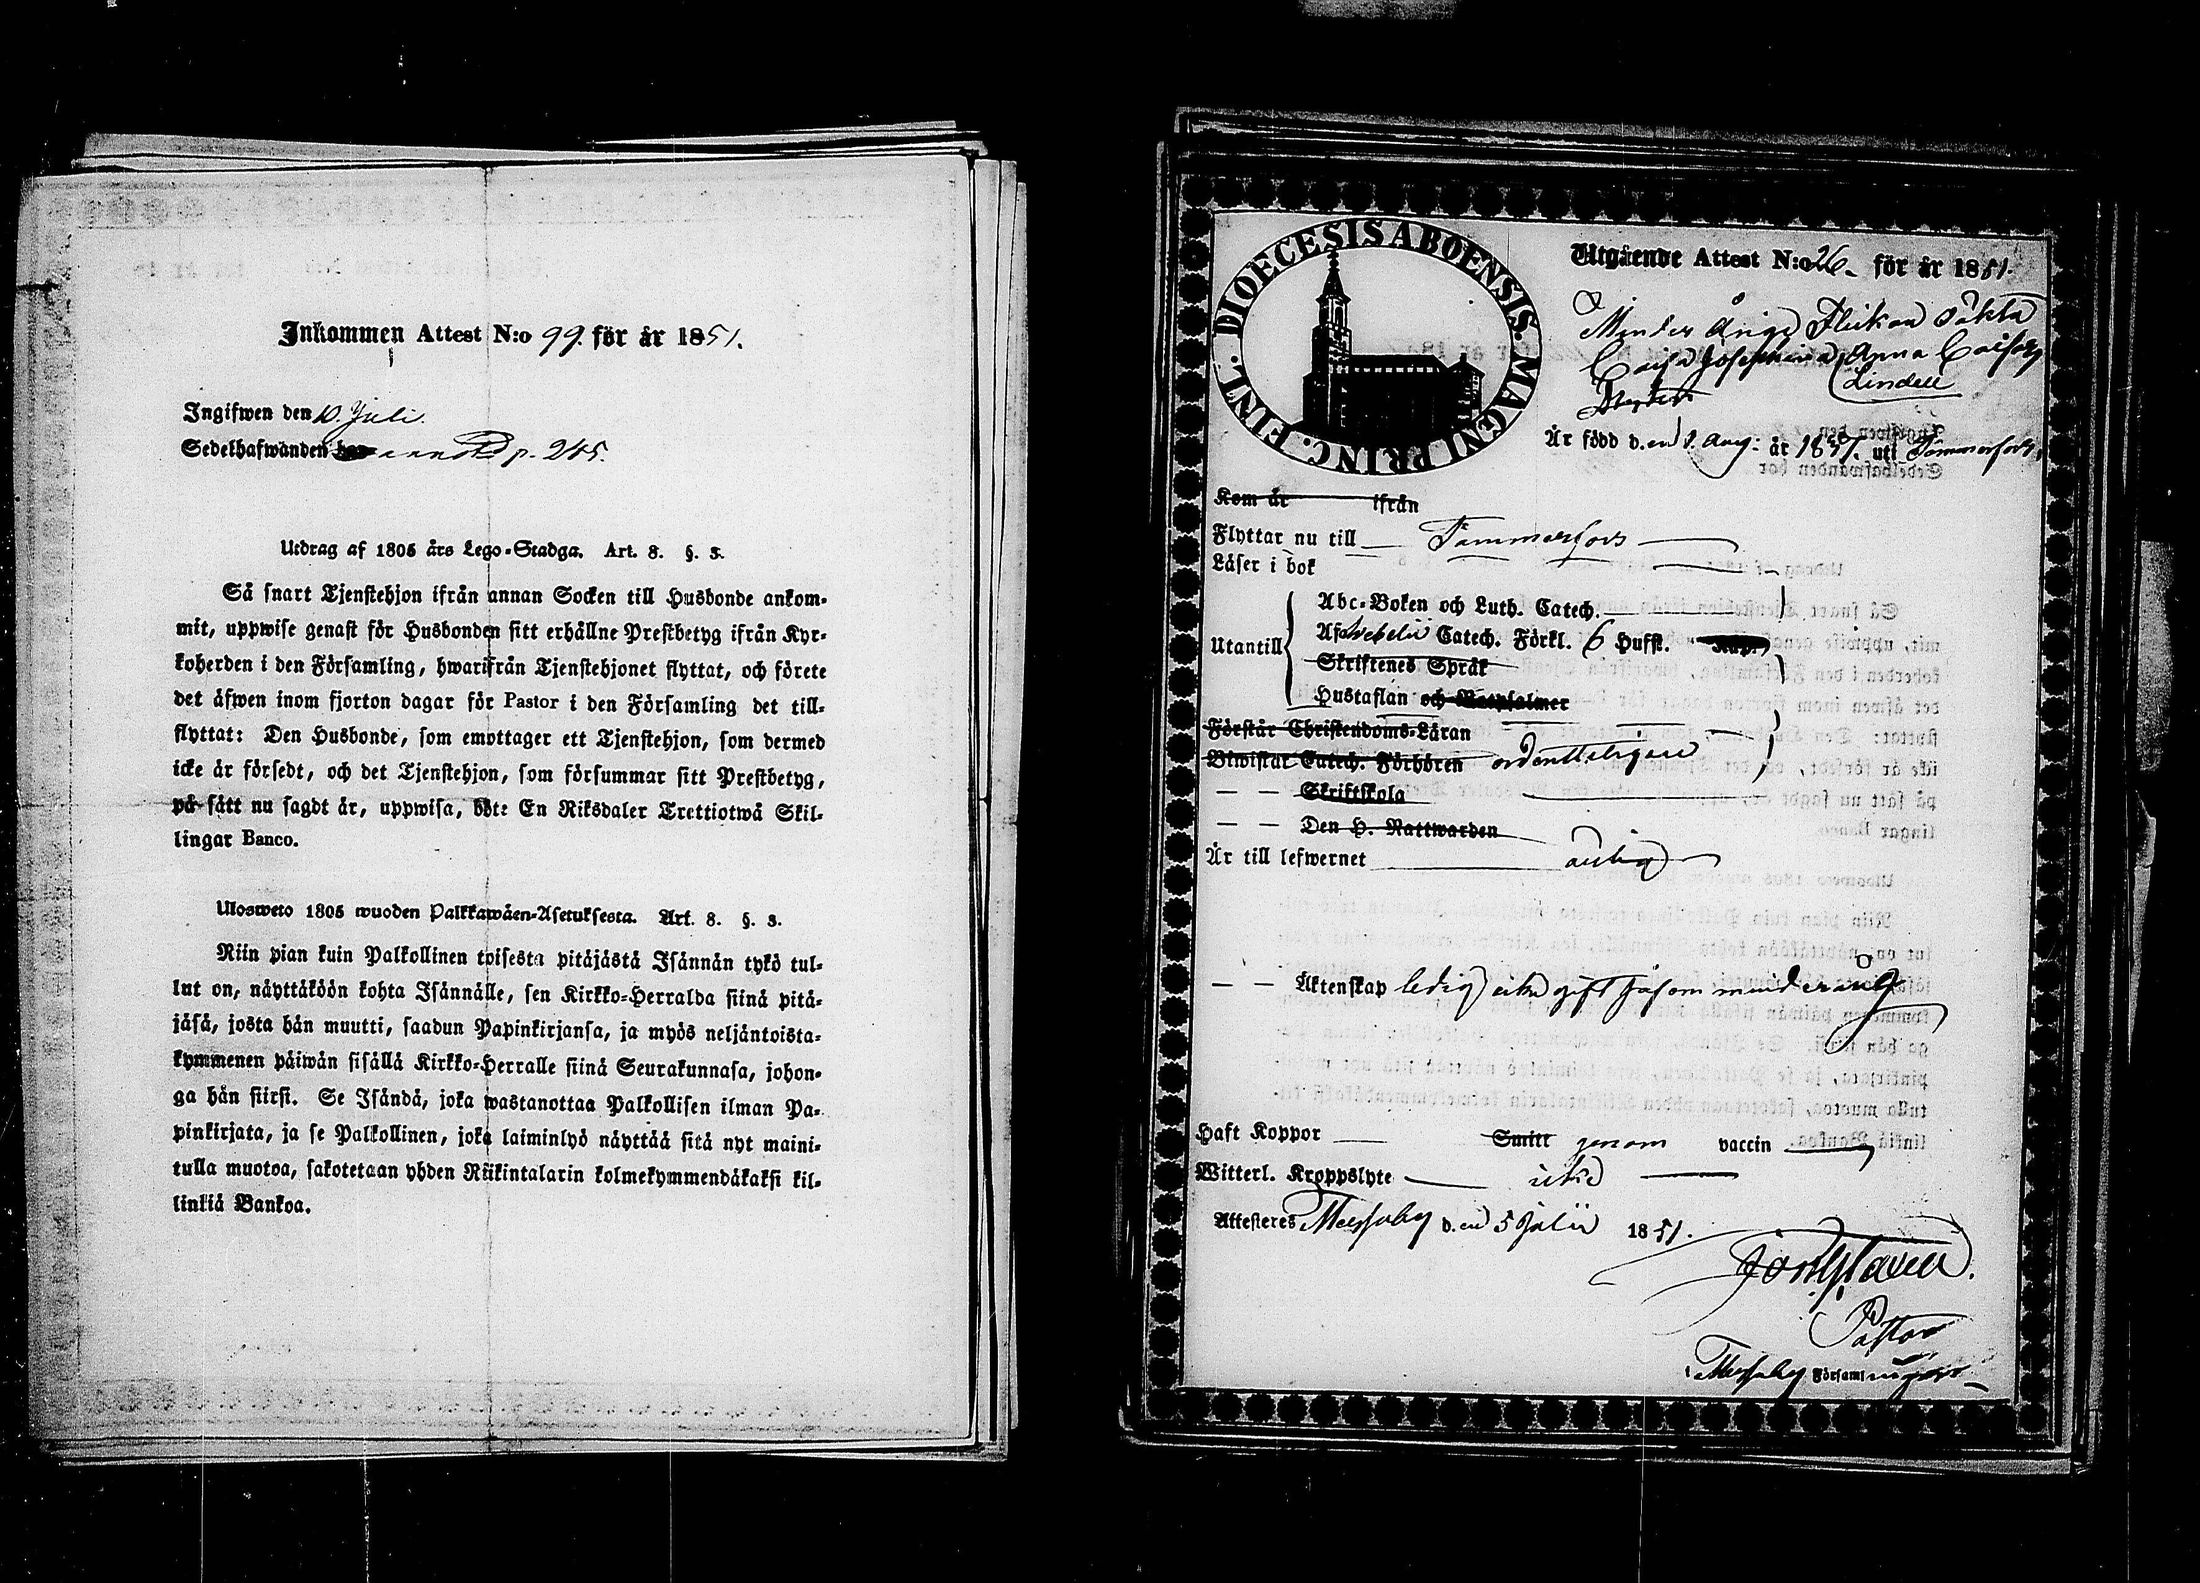 Inkommen Attest N:o 99. för år 1851.
Ingifwen den 10 Juli.
Sedelhafwanden p. 245.
Utdrag af 1805 års Lego-Stadga. Art. 8. §. 3.
Så snart Tjenstehjon ifrån annan Socken till Husbonde ankom-
mit, uppwise genast för Husbonden sitt erhållne Prestbetyg ifrån Kyr-
koherden i den Församling, hwarifrån Tjenstehjonet flyttat, och förete
det äfwen inom fjorton dagar för Pastor i den Församling det till-
flyttat: Den Husbonde, som emottager ett Tjenstehjon, som dermed
icke är försedt, och det Tjenstehjon, som försummar sitt Prestbetyg,
på sätt nu sagdt är, uppwisa, böte En Riksdaler Trettiotwå Skil-
lingar Banco.
Ulosweto 1805 wuoden Palkkawäen-Asetuksesta. Art. 8. §. 3.
Niin pian kuin Palkollinen toisesta pitäjästä Isännän tykö tul-
lut on, näyttäköön kohta Isännälle, sen Kirkko-Herralda siinä pitä-
jäsä, josta hän muutti, saadun Papinkirjansa, ja myös neljäntoista-
kymmenen päiwän sisällä Kirkko-Herralle siinä Seurakunnasa, johon-
ga hän siirsi. Se Isändä, joka wastanottaa Palkollisen ilman Pa-
pinkirjata, ja se Palkollinen, joka laiminlyö näyttää sitä nyt maini-
tulla muotoa, sakotetaan yhden Riikintalarin kolmekymmendäkaksi kil-
linkiä Bankoa.
DIOECESIS ABOENSIS. MAGNI PRINC. FINL.
Utgående Attest N:o 26 för år 1851.
Minder åriga Flickan äkta
Josephina Anna
Lindell
Är född d. en 8. Aug: år 1837. uti Tammerfors,
Kom år ifrån
Flyttar nu till Tammerfors
Läser i bok
Abc-Boken och Luth. Catech.
Utantill Af Svebelii Catech. Förkl. 6 Hufst. Kap.
Skriftenes Språk
Hustaflan och Botpsalmer
Förstår Christendoms-Läran
Biwistat Catech. Förhören ordentteligen
— — Skriftskola
— — Den H. Nattwarden
Är till lefwernet ärlig
— — Äktenskap ledig icke gift såsom minderårig
Haft Koppor Smitt genom vaccin
Witterl. Kroppslyte icke
Attesteres Messuby d. en 5 Julii 1851.
Pastor
Messuby Församlingen